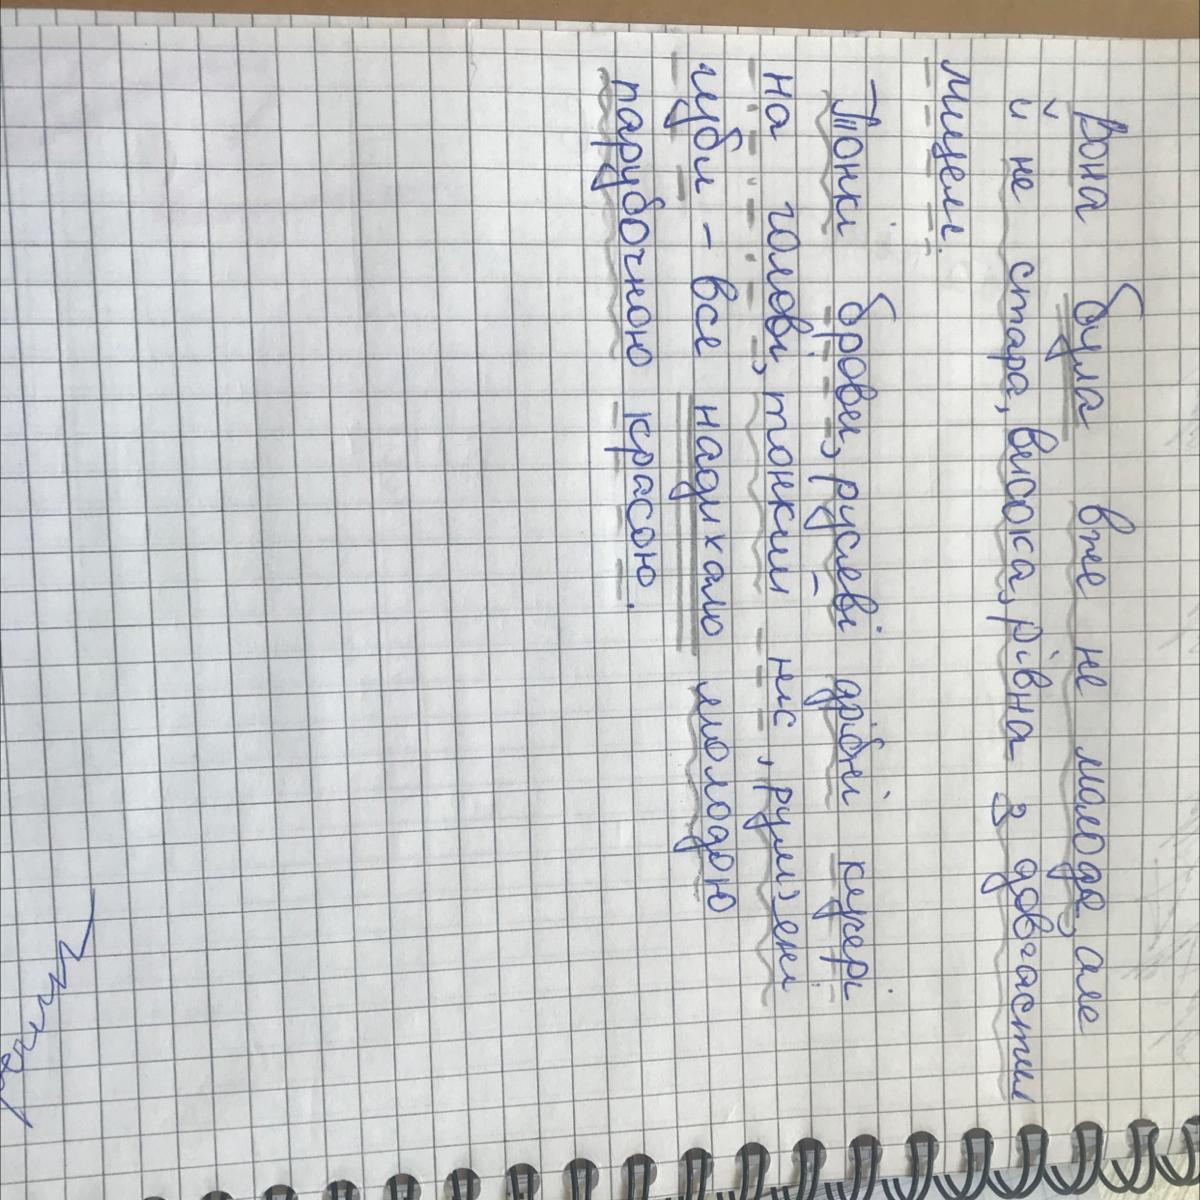 Вона була вже не молода, але
й не стара, висока, рівна з довгастим
лицем.
Тонкі брови, русяві дрібні кучері
на голові, тонкий ніс, рум'яні
губи - все надихало молодою
парубочною красою.